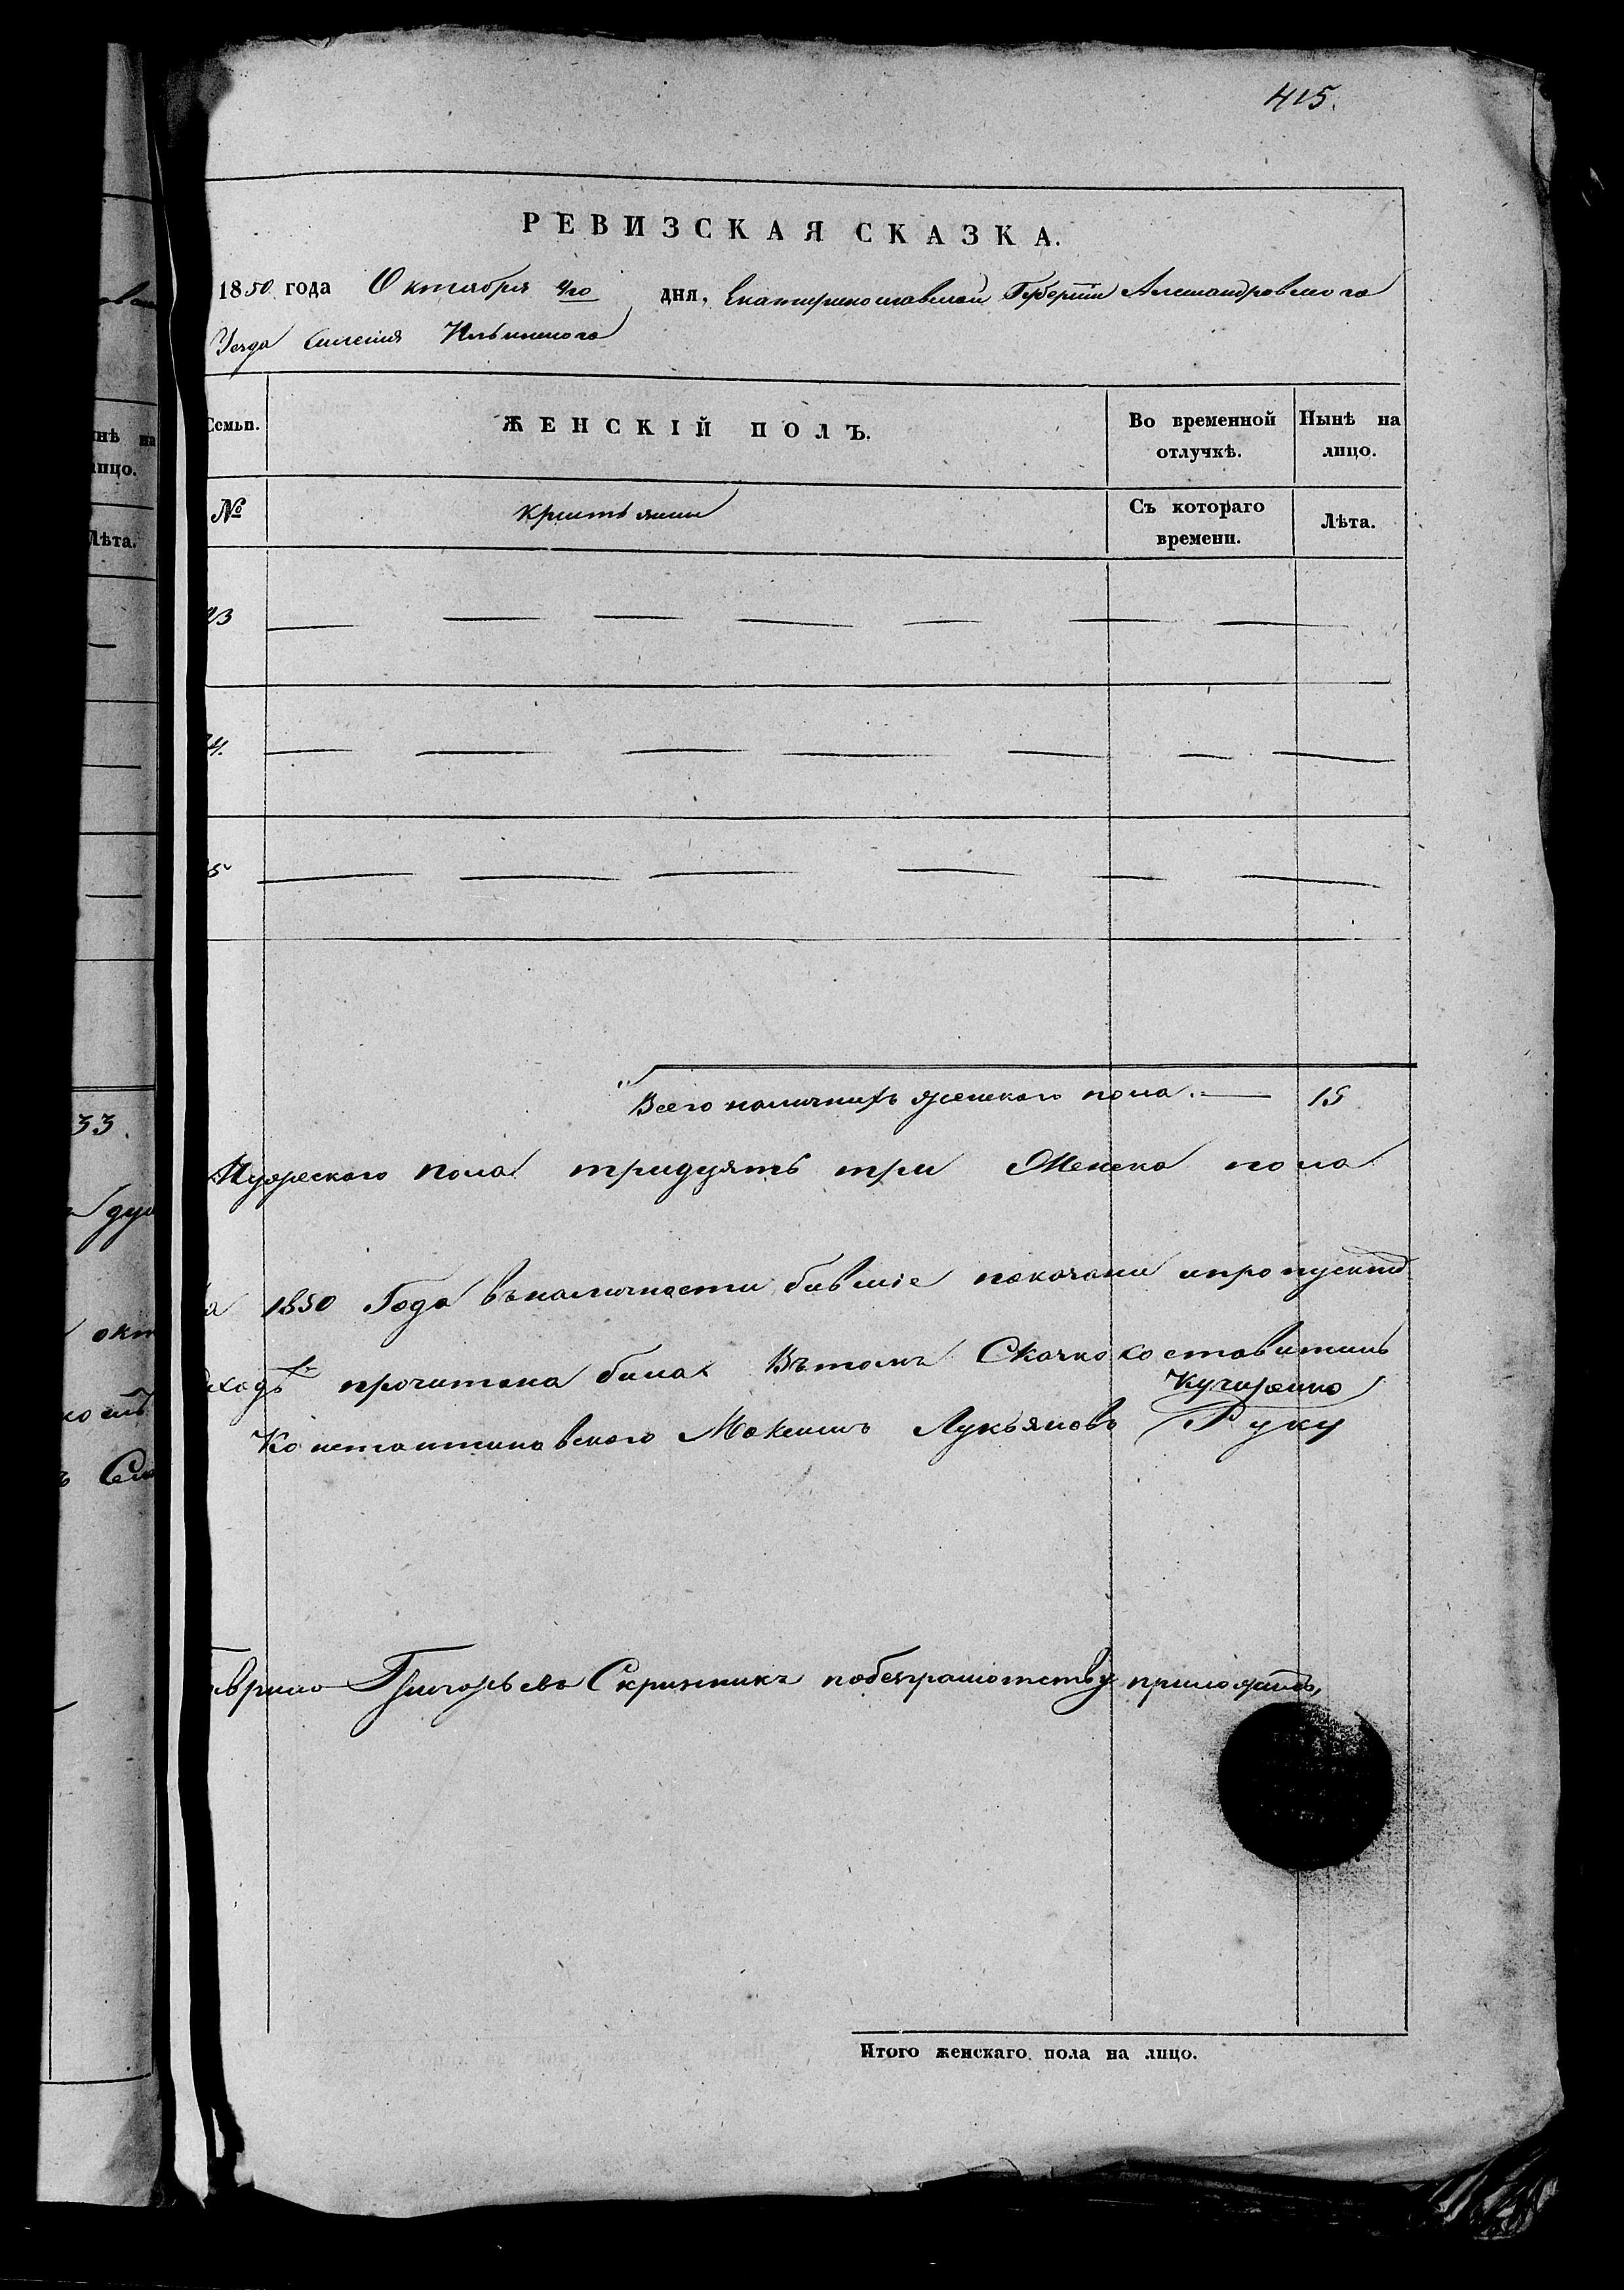 415.
РЕВИЗСКАЯ СКАЗКА.
1850 года Октября 4го дня, Екатеринославской Губернии Александровского
Уезда Селения Ильинского
Семьи. ЖЕНСКІЙ ПОЛЪ. Во временной отлучкѣ. Нынѣ на лицо.
№ Крестьяни Съ котораго времени. Лѣта.
23
24.
25
Всего наличнихъ женского пола. 15
Мужеского пола тридцять три Женска пола
1850 Года въ наличности бившіе показани и пропускид
прочитана била Въ томъ
Кучиренко
Константиновского Максимъ Лукьяновъ Руку
Григорьевъ Скринникъ побезграмотству приложилъ,
Итого женскаго пола на лицо.
нѣ на
лицо.
Лѣта.
33.